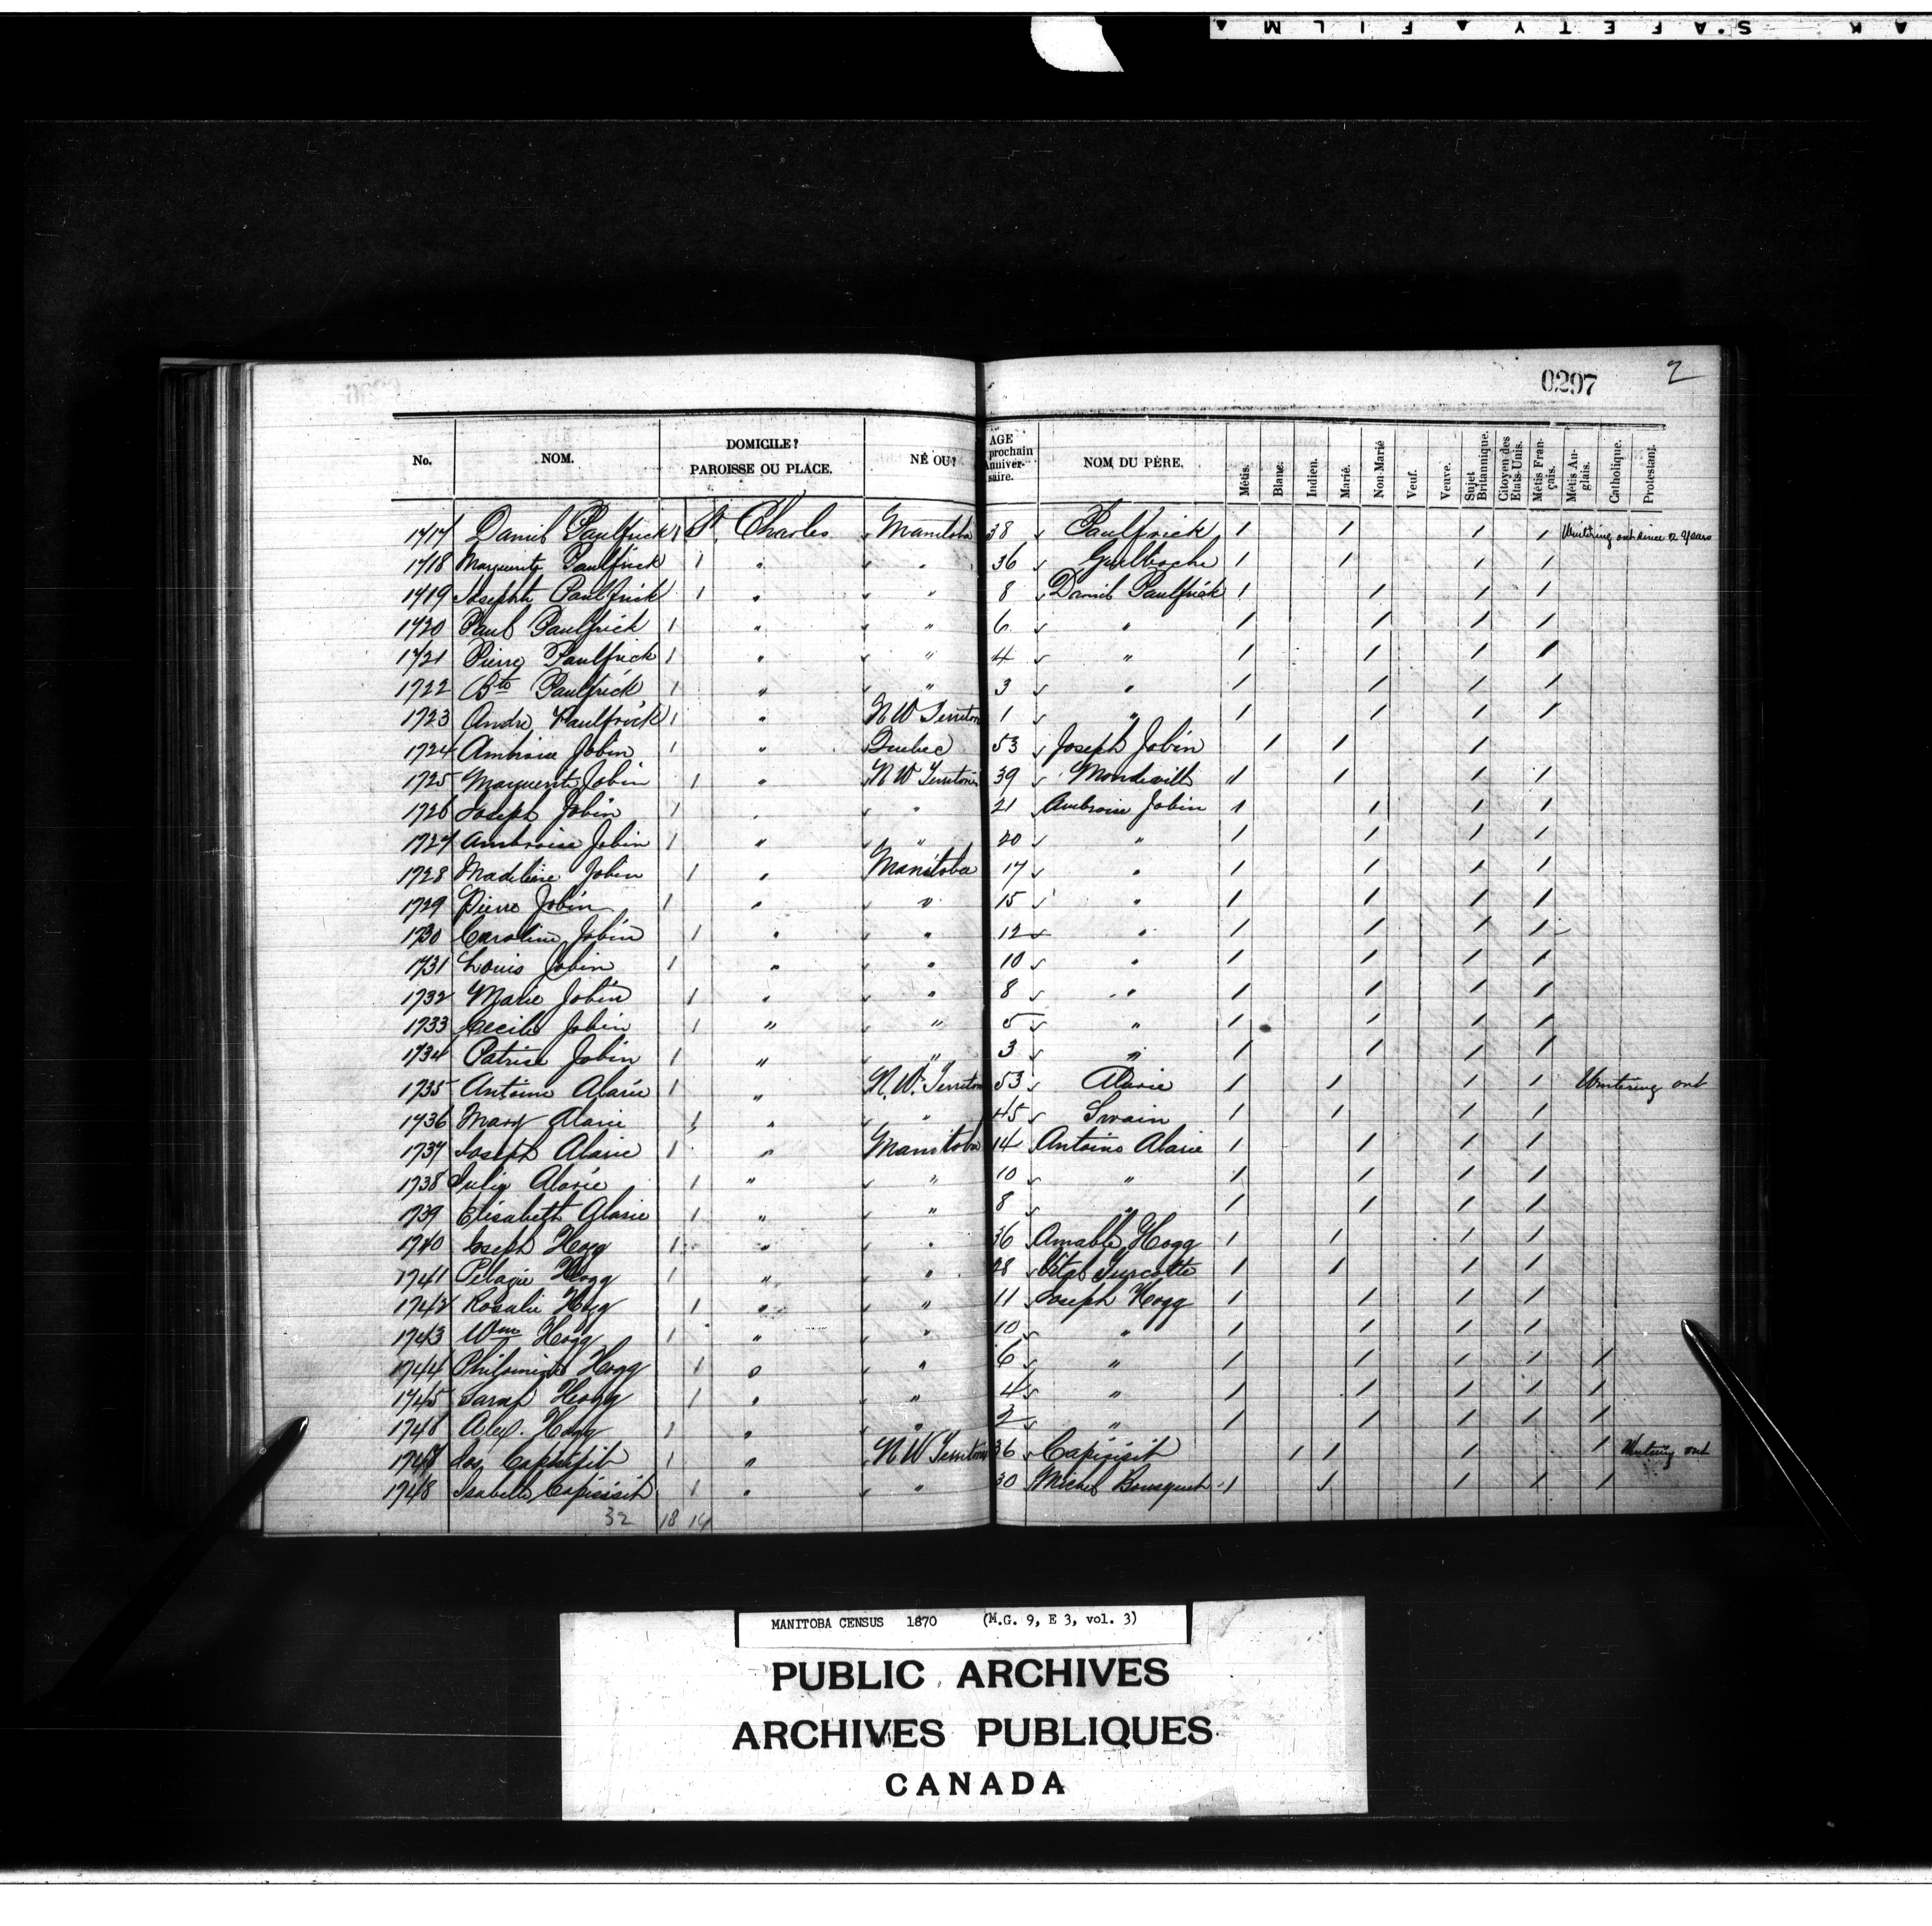 AK SAFETY ▲ FILM ▲
0297 2
No. NOM. DOMICILE? PAROISSE OU PLACE. NÉ OU? AGE prochain Anniversaire. NOM DU PÈRE. Métis. Blanc. Indien. Marié. Non-Marié Veuf. Veuve. Sujet Britannique. Citoyen des Etats-Unis. Métis Français. Métis Anglais. Catholique. Protestant.
1717 Daniel Paulfrick 1 St. Charles Manitoba 38 Paulfrick / / / / Wintering out since 2 Years
1718 Marguerite Paulfrick 1 " " 36 / / / /
1719 Josephte Paulfrick 1 " " 8 Daniel Paulfrick / / / /
1720 Paul Paulfrick 1 " " 6 " / / / /
1721 Pierre Paulfrick 1 " " 4 " / / / /
1722 Bte Paulfrick 1 " " 3 " / / / /
1723 Andre Paulfrick 1 " N W Territor 1 " / / / /
1724 Ambroise Jobin 1 " Quebec 53 Joseph Jobin / / /
1725 Marguerite Jobin 1 " N W Territories 39 / / / /
1726 Joseph Jobin 1 " " 21 Ambroise Jobin / / / /
1727 Ambroise Jobin 1 " " 20 " / / / /
1728 Madeleine Jobin 1 " Manitoba 17 " / / / /
1729 Pierre Jobin 1 " " 15 " / / / /
1730 Caroline Jobin 1 " " 12 " / / / /
1731 Louis Jobin 1 " " 10 " / / / /
1732 Marie Jobin 1 " " 8 " / / / /
1733 Cecile Jobin 1 " " 5 " / / / /
1734 Patrice Jobin 1 " " 3 " / / / /
1735 Antoine Alarie 1 " N. W. Territor 53 Alarie / / / / Wintering out
1736 Mary Alarie 1 " " 45 Swain / / / /
1737 Joseph Alarie 1 " Manitoba 14 Antoine Alarie / / / /
1738 Julie Alarie 1 " " 10 " / / / /
1739 Elisabeth Alarie 1 " " 8 " / / / /
1740 Joseph Hogg 1 " " 36 Amable Hogg / / / /
1741 Pelagie Hogg 1 " " 28 Vital Turcotte / / / /
1742 Rosalie Hogg 1 " " 11 Joseph Hogg / / / /
1743 Wm Hogg 1 " " 10 " / / / /
1744 Hogg 1 " " 6 " / / / / /
1745 Sarah Hogg 1 " " 4 " / / / / /
1746 Alex. Hogg 1 " " 2 " / / / / /
1747 Jos. Capisisit 1 " N W Territories 36 Capisisit / / / / Wintering out
1748 Isabelle Capisisit 1 " " 30 Michel Bousquet / / / / /
32 18 14
MANITOBA CENSUS 1870 (M.G. 9, E 3, vol. 3)
PUBLIC ARCHIVES
ARCHIVES PUBLIQUES
CANADA